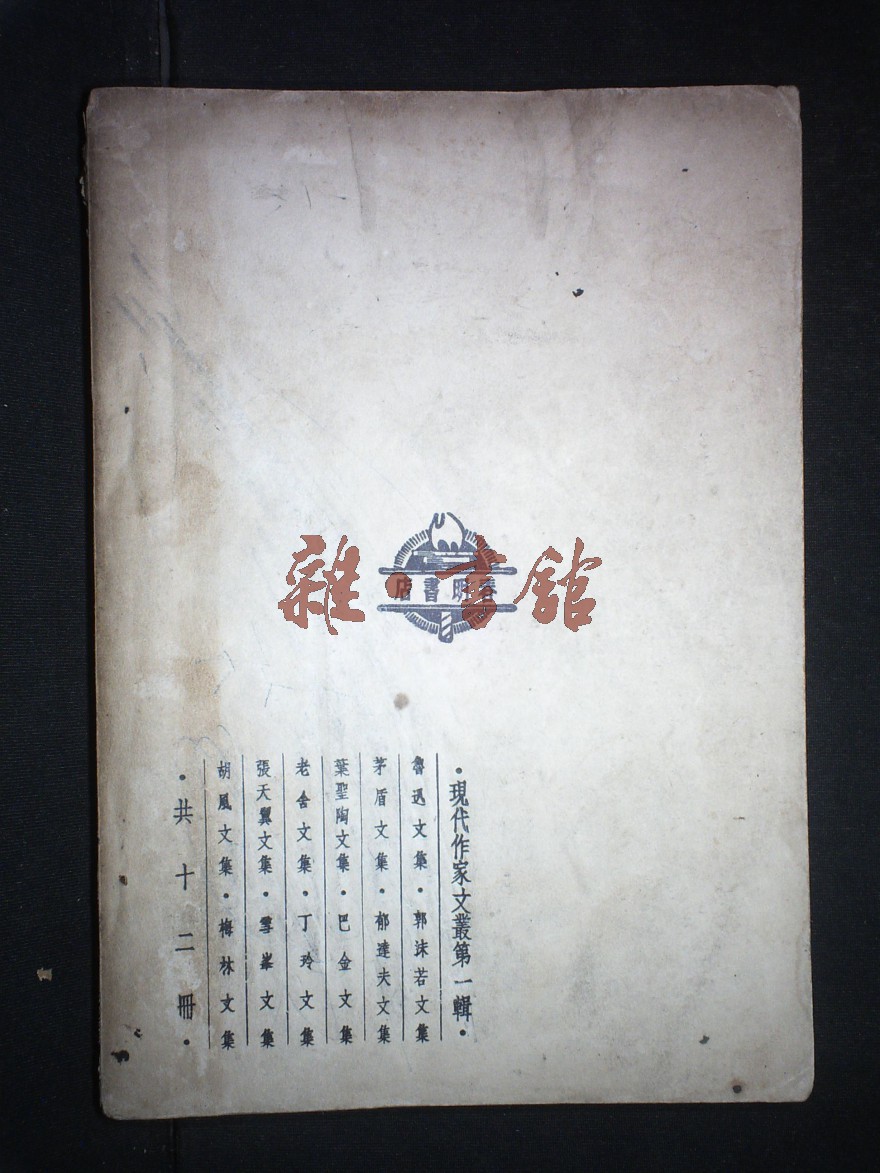 雜·書館
春明書店
·現代作家文叢第一輯·
魯迅文集·郭沫若文集
茅盾文集·郁達夫文集
葉聖陶文集·巴金文集
老舍文集·丁玲文集
張天翼文集·雪峯文集
胡風文集·梅林文集
·共十二冊·